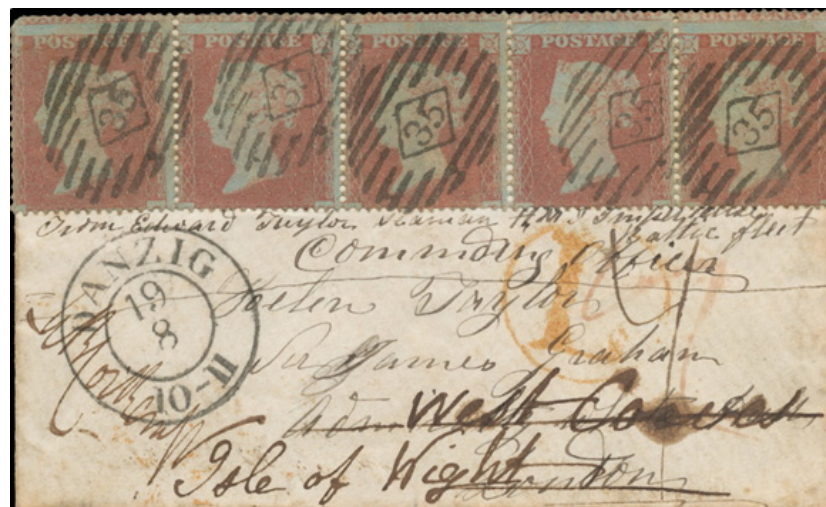 POSTAGE POSTAGE POSTAGE POSTAGE POSTAGE
35 35 35 35 35
From Edward Taylor Seaman H.M.S. Imperieuse
Baltic fleet
Commdng Officer
DANZIG
19
8
10-11
1
Helen Taylor
Sir James Graham
West Cowes
Isle of Wight
London